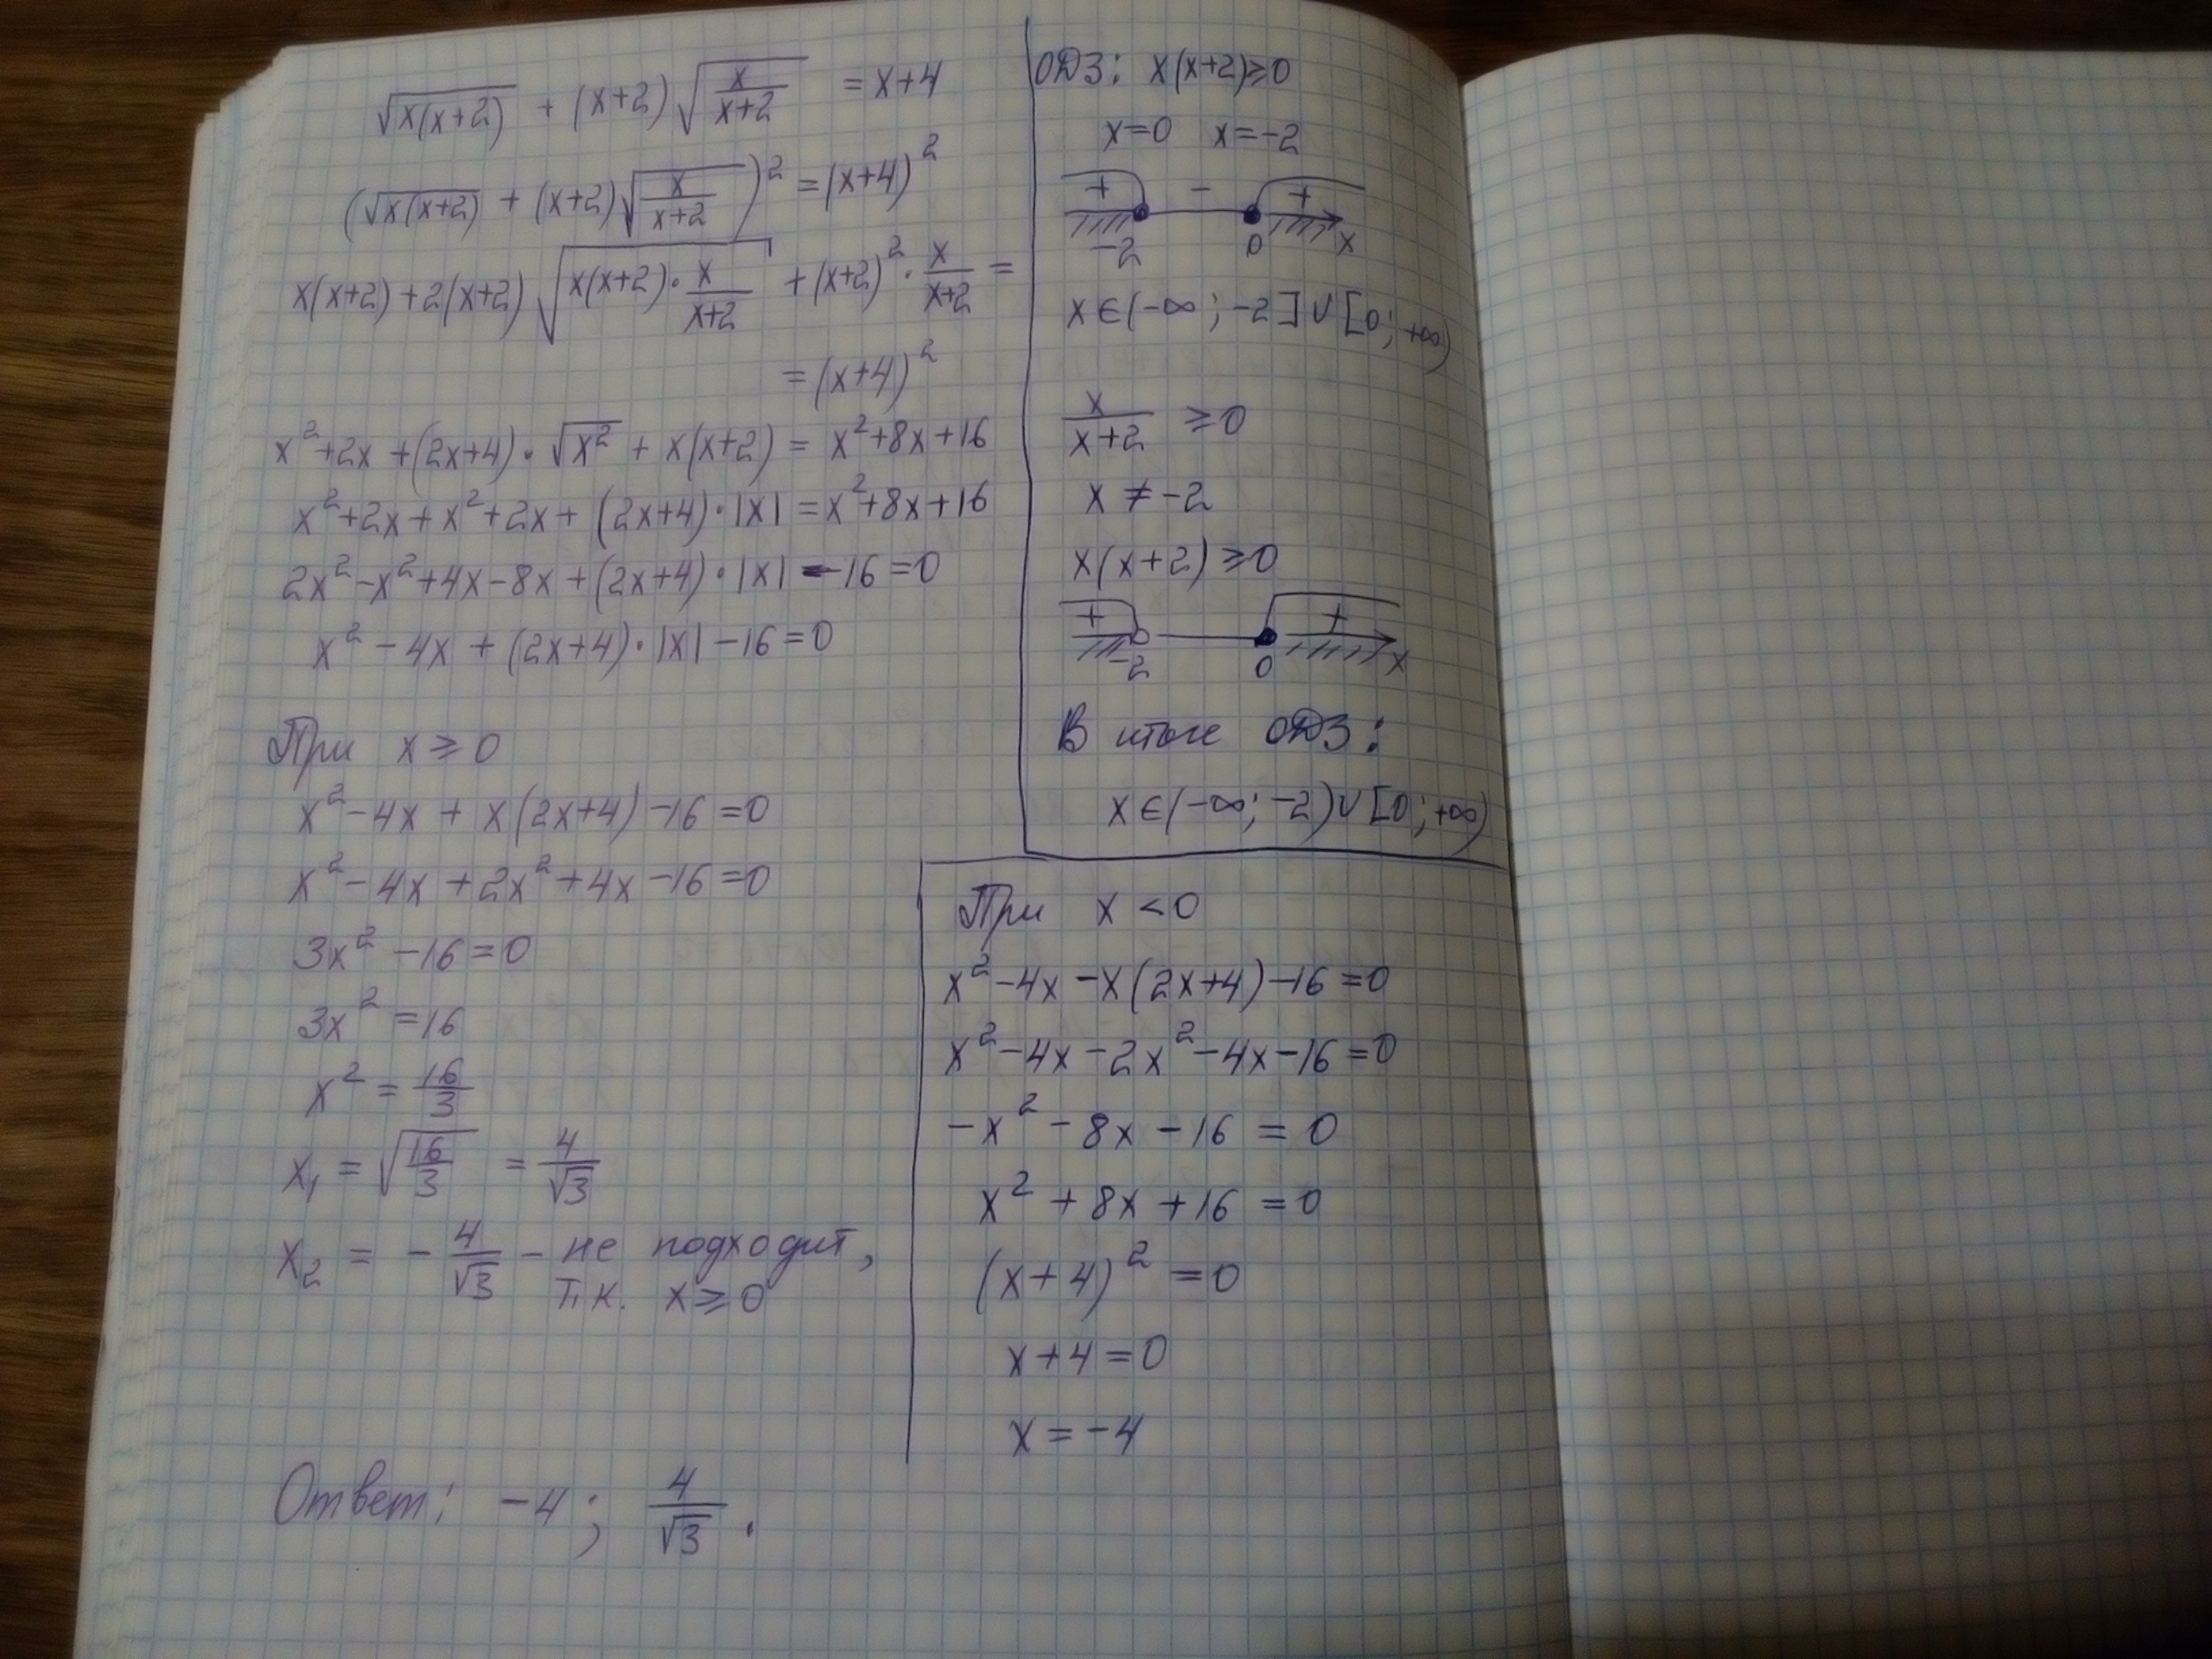 √(x(x+2)) + (x+2)√(x/(x+2)) = x+4
(√(x(x+2)) + (x+2)√(x/(x+2)))² = (x+4)²
x(x+2) + 2(x+2)√(x(x+2)·x/(x+2)) + (x+2)²·x/(x+2) =
= (x+4)²
x²+2x+(2x+4)·√(x²) + x(x+2) = x²+8x+16
x²+2x+x²+2x+(2x+4)·|x| = x²+8x+16
2x²-x²+4x-8x+(2x+4)·|x| -16=0
x²-4x+(2x+4)·|x|-16=0
При x ≥ 0
x²-4x + x(2x+4)-16=0
x²-4x+2x²+4x-16=0
3x²-16=0
3x²=16
x² = 16/3
x₁ = √(16/3) = 4/√3
x₂ = -4/√3 - не подходит,
т.к. x ≥ 0
ОДЗ: x(x+2)≥0
x=0 x=-2
+ - +
-2 0 x
x∈(-∞; -2]∨[0; +∞)
x/(x+2) ≥0
x ≠ -2
x(x+2) ≥0
+ +
-2 0 x
В итоге ОДЗ:
x∈(-∞; -2)∨[0; +∞)
При x < 0
x²-4x-x(2x+4)-16=0
x²-4x-2x²-4x-16=0
-x²-8x-16=0
x²+8x+16=0
(x+4)²=0
x+4=0
x=-4
Ответ: -4; 4/√3.